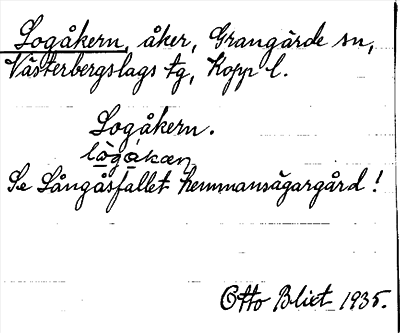 Logåkern, åker, Grangärde sn,
Västerbergslags tg, Kopp l.
Logåkern.
lògåkæn
Se Långåsfallet hemmansägargård!
Otto Blixt 1935.